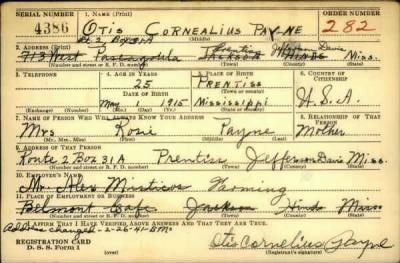 SERIAL NUMBER 1. NAME (Print) ORDER NUMBER
4386 OTIS CORNEALIUS PAYNE 282
Rt 2 Box 31A Prentiss Jefferson Davis
2. ADDRESS (Print)
713 West Pascagoula JACKSON HINDS Miss.
(Number and street or R. F. D. number) (Town) (County) (State)
3. TELEPHONE 4. AGE IN YEARS 5. PLACE OF BIRTH 6. COUNTRY OF CITIZENSHIP
25 PRENTISS
DATE OF BIRTH (Town or county)
May 1 1915 Mississippi U.S.A.
(Exchange) (Number) (Mo.) (Day) (Yr.) (State or country)
7. NAME OF PERSON WHO WILL ALWAYS KNOW YOUR ADDRESS 8. RELATIONSHIP OF THAT PERSON
Mrs Rosie Payne Mother
(Mr., Mrs., Miss) (First) (Middle) (Last)
9. ADDRESS OF THAT PERSON
Route 2 Box 31A Prentiss Jefferson Davis Miss.
(Number and street or R. F. D. number) (Town) (County) (State)
10. EMPLOYER'S NAME
Mr. Alex Farming
11. PLACE OF EMPLOYMENT OR BUSINESS
Belmont Cafe Jackson Hinds Miss
(Number and street or R. F. D. number) (Town) (County) (State)
I AFFIRM THAT I HAVE VERIFIED ABOVE ANSWERS AND THAT THEY ARE TRUE.
Address changed - 2-26-41
REGISTRATION CARD Otis Cornelius Payne
D. S. S. Form 1 (over) (Registrant's signature)